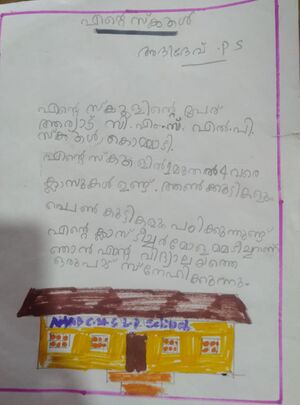 എന്റെ സ്കൂൾ
അദിദേവ് .P S
എന്റെ സ്കൂളിന്റെ പേര്
ആര്യാട്. സി.എം.എസ്. എൽ.പി.
സ്കൂൾ, കൊമ്മാടി.
എന്റെ സ്കൂളിൽ 1 മുതൽ 4 വരെ
ക്ലാസുകൾ ഉണ്ട്. ആൺകുട്ടികളും
പെൺ കുട്ടികളും പഠിക്കുന്നുണ്ട്
എന്റെ ക്ലാസ് ടീച്ചർ ആണ്
ഞാൻ എന്റെ വിദ്യാലയത്തെ
ഒരുപാട് സ്നേഹിക്കുന്നു.
C.M.S L.P School